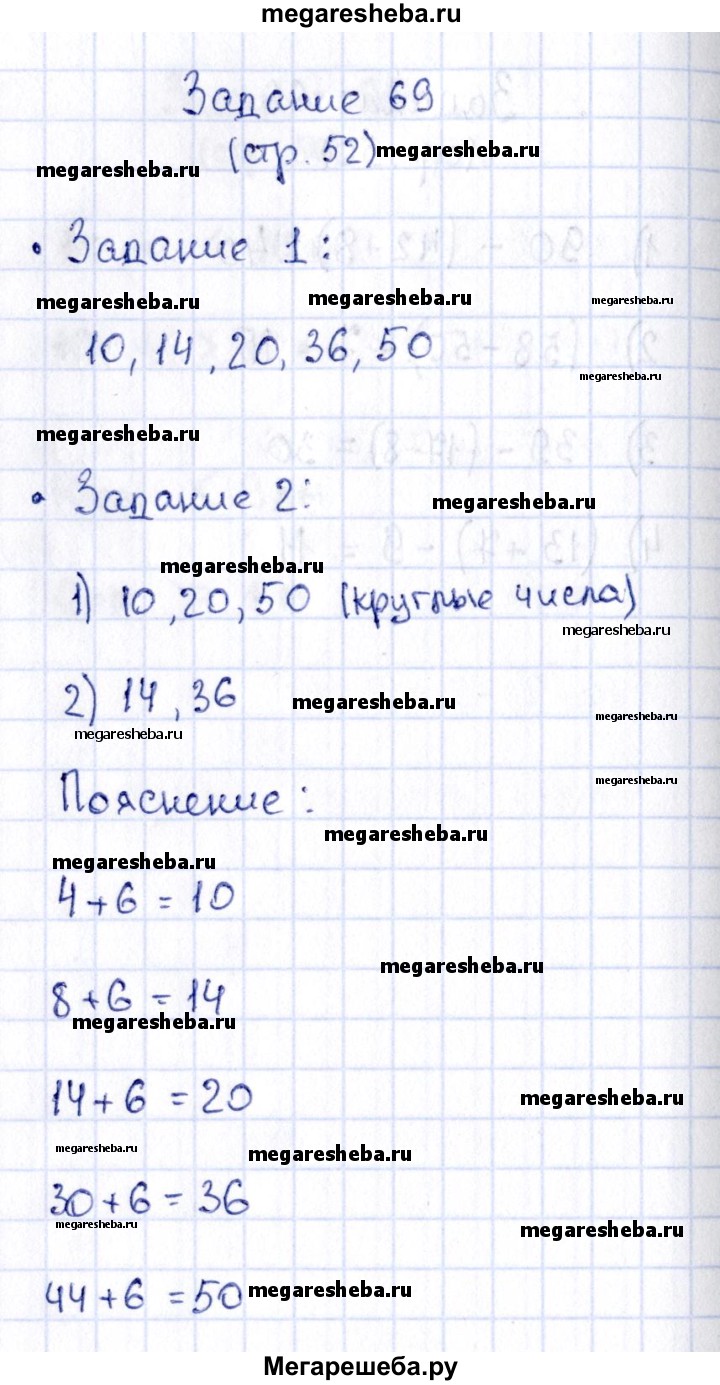 megaresheba.ru
Задание 69
(стр. 52) megaresheba.ru
megaresheba.ru
• Задание 1:
megaresheba.ru megaresheba.ru megaresheba.ru
10, 14, 20, 36, 50
megaresheba.ru
megaresheba.ru
• Задание 2:
megaresheba.ru
megaresheba.ru
1) 10, 20, 50 (круглые числа)
megaresheba.ru
2) 14, 36 megaresheba.ru
megaresheba.ru
megaresheba.ru
Пояснение:
megaresheba.ru
megaresheba.ru
megaresheba.ru
4 + 6 = 10
megaresheba.ru
8 + 6 = 14
megaresheba.ru
14 + 6 = 20 megaresheba.ru
megaresheba.ru megaresheba.ru
30 + 6 = 36
megaresheba.ru megaresheba.ru
44 + 6 = 50 megaresheba.ru
Мегарешеба.ру